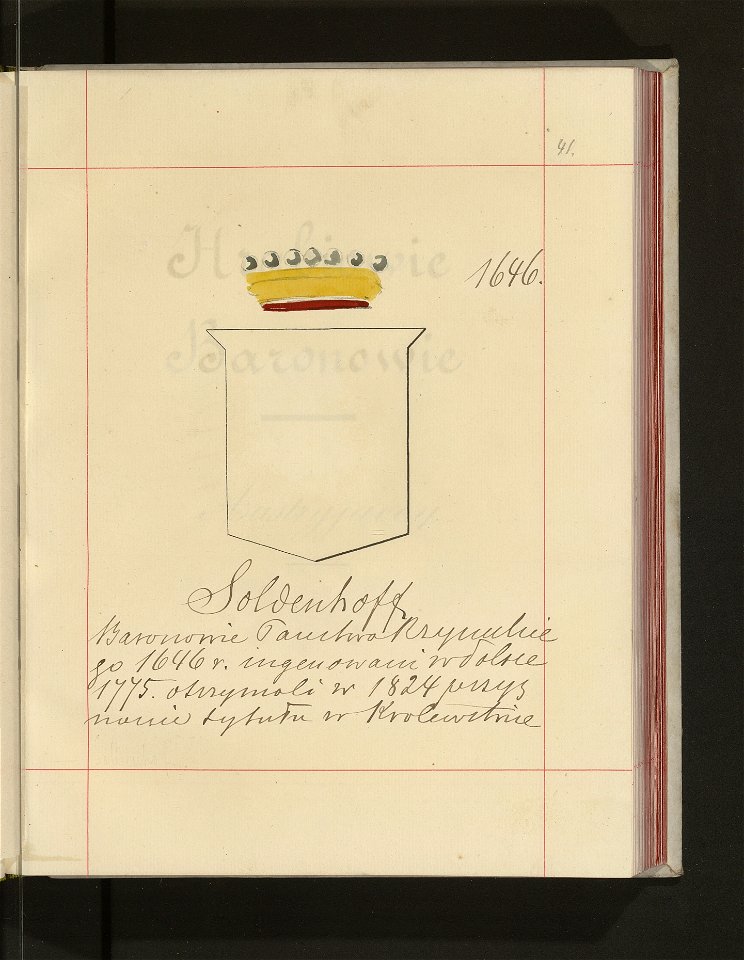 41.
1646.
Hrabiowie
Baronowie
Soldenhoff
Baronowie Państwa Rzymskie
go 1646 r. ingenowani w Polsce
1775. otrzymali w 1824 przyz
nanie tytułu w Krolewstwie